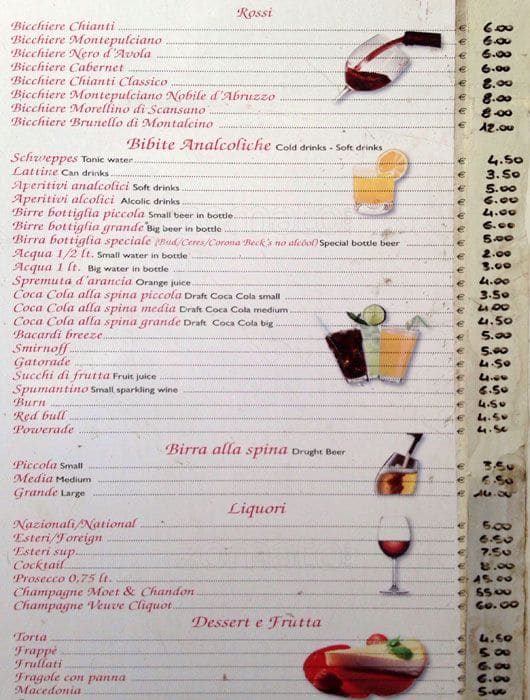 Rossi
Bicchiere Chianti € 6.00
Bicchiere Montepulciano € 6.00
Bicchiere Nero d'Avola € 6.00
Bicchiere Cabernet € 6.00
Bicchiere Chianti Classico € 8.00
Bicchiere Montepulciano Nobile d'Abruzzo € 8.00
Bicchiere Morellino di Scansano € 8.00
Bicchiere Brunello di Montalcino € 12.00
Bibite Analcoliche Cold drinks - Soft drinks
Schweppes Tonic water € 4.50
Lattine Can drinks € 3.50
Aperitivi analcolici Soft drinks € 5.00
Aperitivi alcolici Alcolic drinks € 6.00
Birre bottiglia piccola Small beer in bottle € 4.00
Birre bottiglia grande Big beer in bottle € 6.00
Birra bottiglia speciale (Bud/Ceres/Corona Beck's no alcöol) Special bottle beer € 5.00
Acqua 1/2 lt. Small water in bottle € 2.00
Acqua 1 lt. Big water in bottle € 3.00
Spremuta d'arancia Orange juice € 4.00
Coca Cola alla spina piccola Draft Coca Cola small € 3.50
Coca Cola alla spina media Draft Coca Cola medium € 4.00
Coca Cola alla spina grande Draft Coca Cola big € 4.50
Bacardi breeze € 5.00
Smirnoff € 5.00
Gatorade € 4.50
Succhi di frutta Fruit juice € 4.00
Spumantino Small sparkling wine € 6.50
Burn € 4.50
Red bull € 4.50
Powerade € 4.50
Birra alla spina Drught Beer
Piccola Small € 3.50
Media Medium € 6.50
Grande Large € 14.00
Liquori
Nazionali/National € 5.00
Esteri/Foreign € 6.50
Esteri sup. € 7.50
Cocktail € 8.00
Prosecco 0,75 lt. € 15.00
Champagne Moet & Chandon € 55.00
Champagne Veuve Cliquot € 60.00
Dessert e Frutta
Torta € 4.50
Frappé € 5.00
Frullati € 5.00
Fragole con panna € 6.00
Macedonia € 5.00